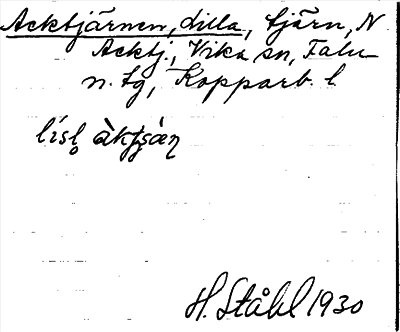 Acktjärnen, Lilla, tjärn, N
Acktj., Vika sn, Falu
n. tg, Kopparb. l
lísl̥ àktjæ̀ṇ
H. Ståhl 1930